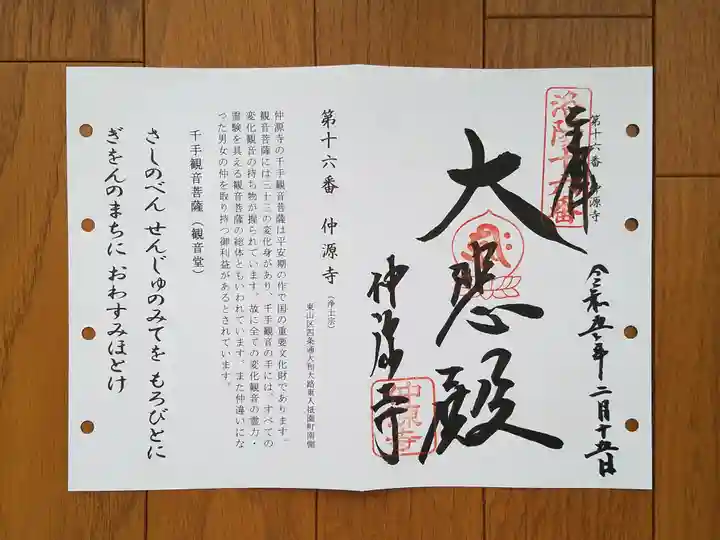 第十六番　仲源寺
奉拝
洛陽十六番
令和五年二月十五日
大悲殿
仲源寺
仲源寺
第十六番　仲源寺（浄土宗）
東山区四条通大和大路東入祇園町南側
仲源寺の千手観音菩薩は平安期の作で国の重要文化財であります。
観音菩薩には三十三の変化身があり、千手観音の手には、すべての
変化観音の持ち物が握られています。故に全ての変化観音の霊力・
霊験を具える観音菩薩の総体ともいわれています。また仲違いにな
った男女の仲を取り持つ御利益があるとされています。
千手観音菩薩（観音堂）
さしのべん せんじゅのみてを もろびとに
ぎをんのまちに おわすみほとけ